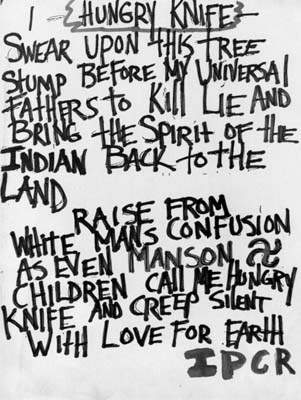 I - HUNGRY KNIFE -
SWEAR UPON THIS TREE
STUMP BEFORE MY UNIVERSAL
FATHERS to KILL LIE AND
BRING the SPIRIT OF the
INDIAN BACK to tHE
LAND
RAISE FROM
WHITE MANS CONFUSION
AS EVEN MANSON
CHILDREN CALL ME HUNGRY
KNIFE AND CREEP SILENT
WITH LOVE FOR EARTH
IPCR